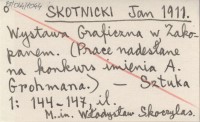 SKOTNICKI Jan 1911.
Wystawa Graficzna w Zako-
panem. (Prace nadesłane
na konkurs imienia A.
Grohmana.) — Sztuka
1: 144-147. il
M.in. Władysław Skoczylas.